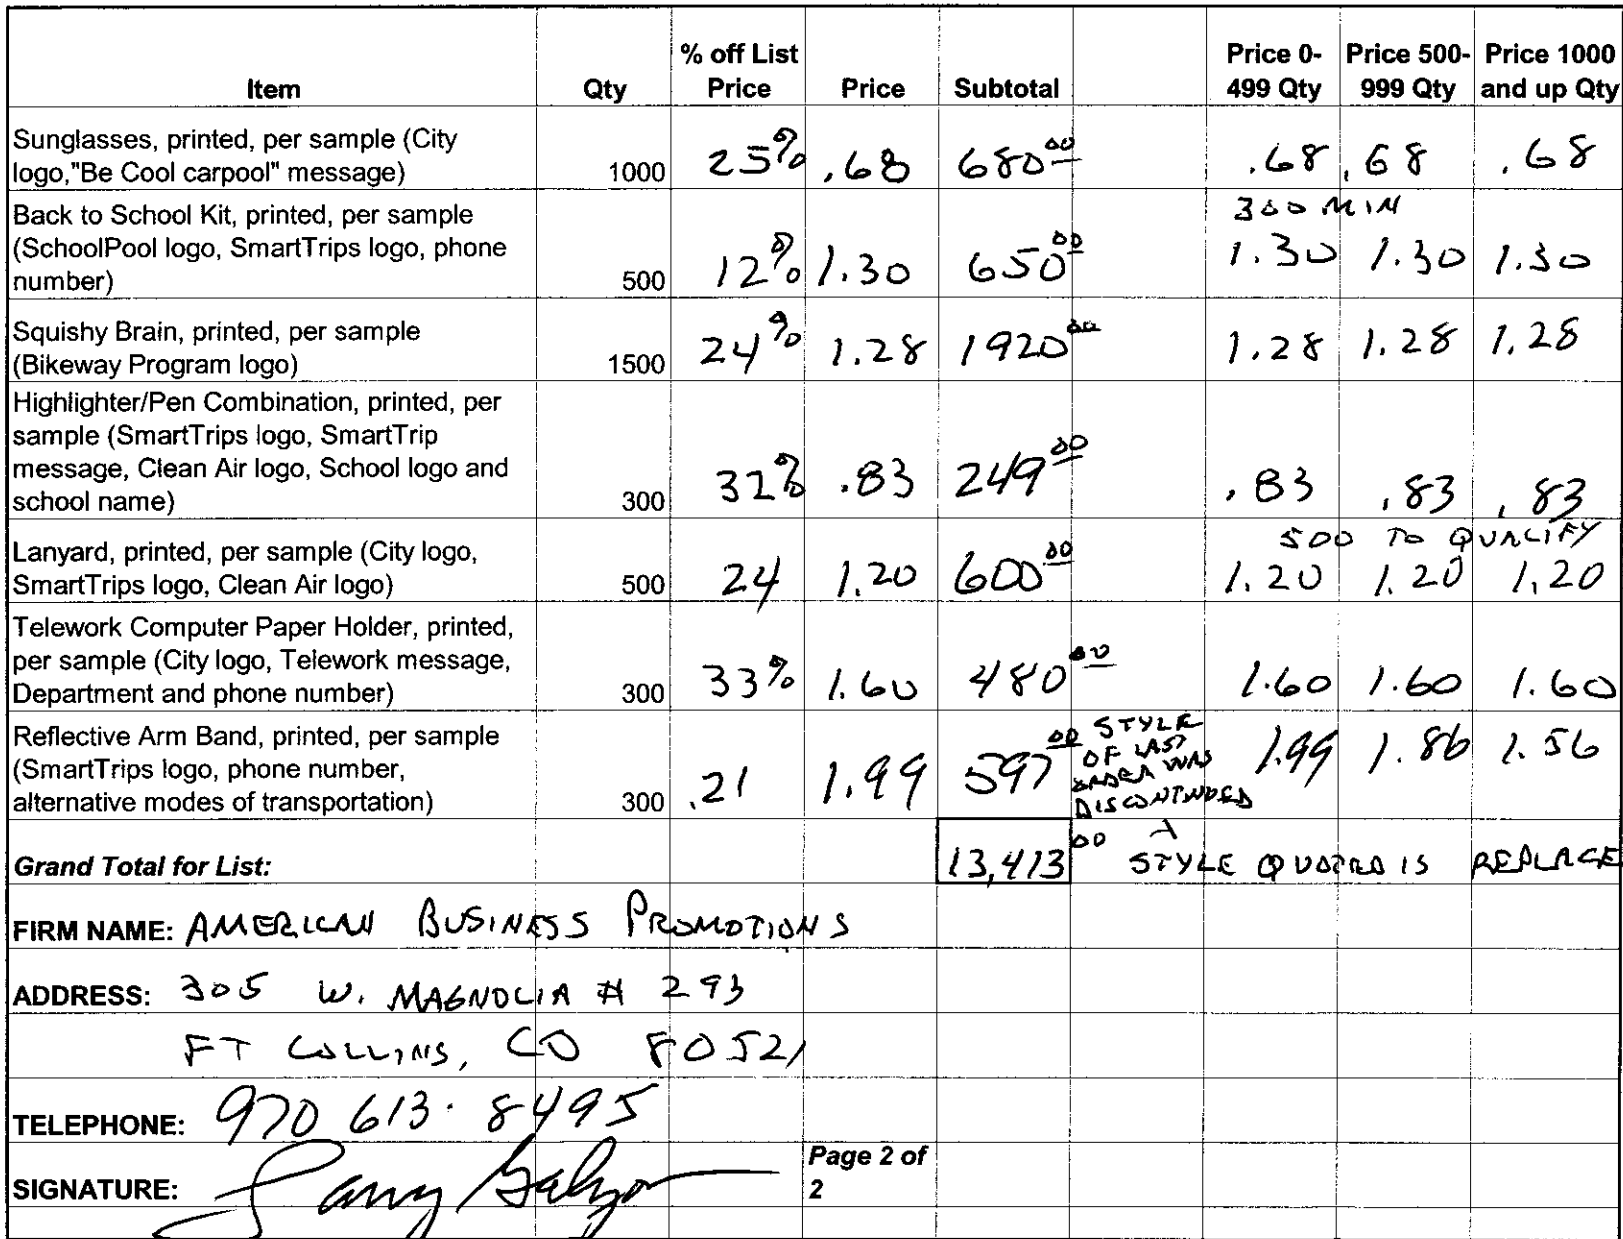 Item Qty % off List Price Price Subtotal Price 0-499 Qty Price 500-999 Qty Price 1000 and up Qty
Sunglasses, printed, per sample (City
logo,"Be Cool carpool" message) 1000 25% .68 680.00 .68 .68 .68
Back to School Kit, printed, per sample 300 MIN
(SchoolPool logo, SmartTrips logo, phone
number) 500 12% 1.30 650.00 1.30 1.30 1.30
Squishy Brain, printed, per sample
(Bikeway Program logo) 1500 24% 1.28 1920.00 1.28 1.28 1.28
Highlighter/Pen Combination, printed, per
sample (SmartTrips logo, SmartTrip
message, Clean Air logo, School logo and
school name) 300 32% .83 249.00 .83 .83 .83
Lanyard, printed, per sample (City logo, 500 TO QUALIFY
SmartTrips logo, Clean Air logo) 500 24 1.20 600.00 1.20 1.20 1.20
Telework Computer Paper Holder, printed,
per sample (City logo, Telework message,
Department and phone number) 300 33% 1.60 480.00 1.60 1.60 1.60
Reflective Arm Band, printed, per sample
(SmartTrips logo, phone number,
alternative modes of transportation) 300 .21 1.99 597.00 STYLE OF LAST ORDER WAS DISCONTINUED 1.99 1.86 1.56
Grand Total for List: 13,413.00 STYLE QUOTED IS REPLACE
FIRM NAME: AMERICAN BUSINESS PROMOTIONS
ADDRESS: 305 W. MAGNOLIA # 293
FT COLLINS, CO 80521
TELEPHONE: 970 613. 8495
SIGNATURE: Page 2 of
2